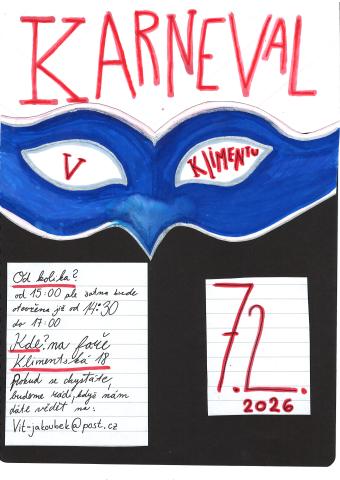 KARNEVAL
V KLIMENTU
Od kolika?
od 15:00 ale šatna bude
otevřena již od 14:30
do 17:00
Kde? na faře
Klimentská 18
Pokud se chystáte
budeme rádi, když nám
dáte vědět na:
Vit-jakoubek@post.cz
7.2.
2026